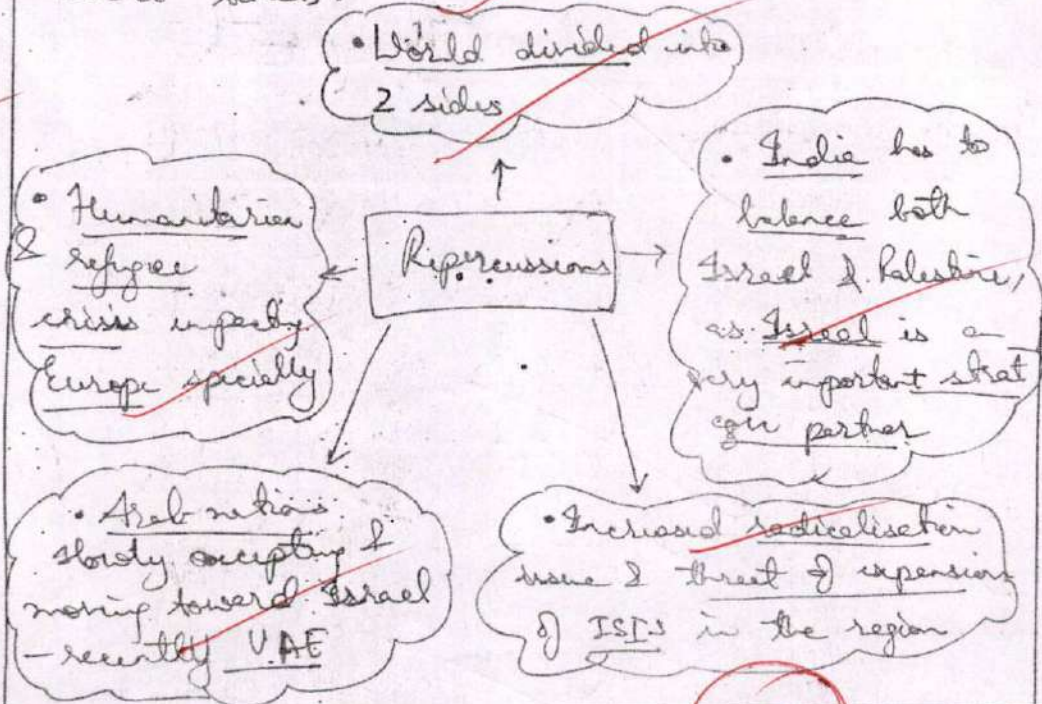 • World divided into
2 sides
• Humanitarian
& refugee
crisis impacting
Europe specially
Repercussions
• India has to
balance both
Israel & Palestine,
as Israel is a
very important strat
egic partner
• Arab nations
slowly accepting &
moving toward Israel
– recently UAE
• Increased radicalisation
issue & threat of expansion
of ISIS in the region